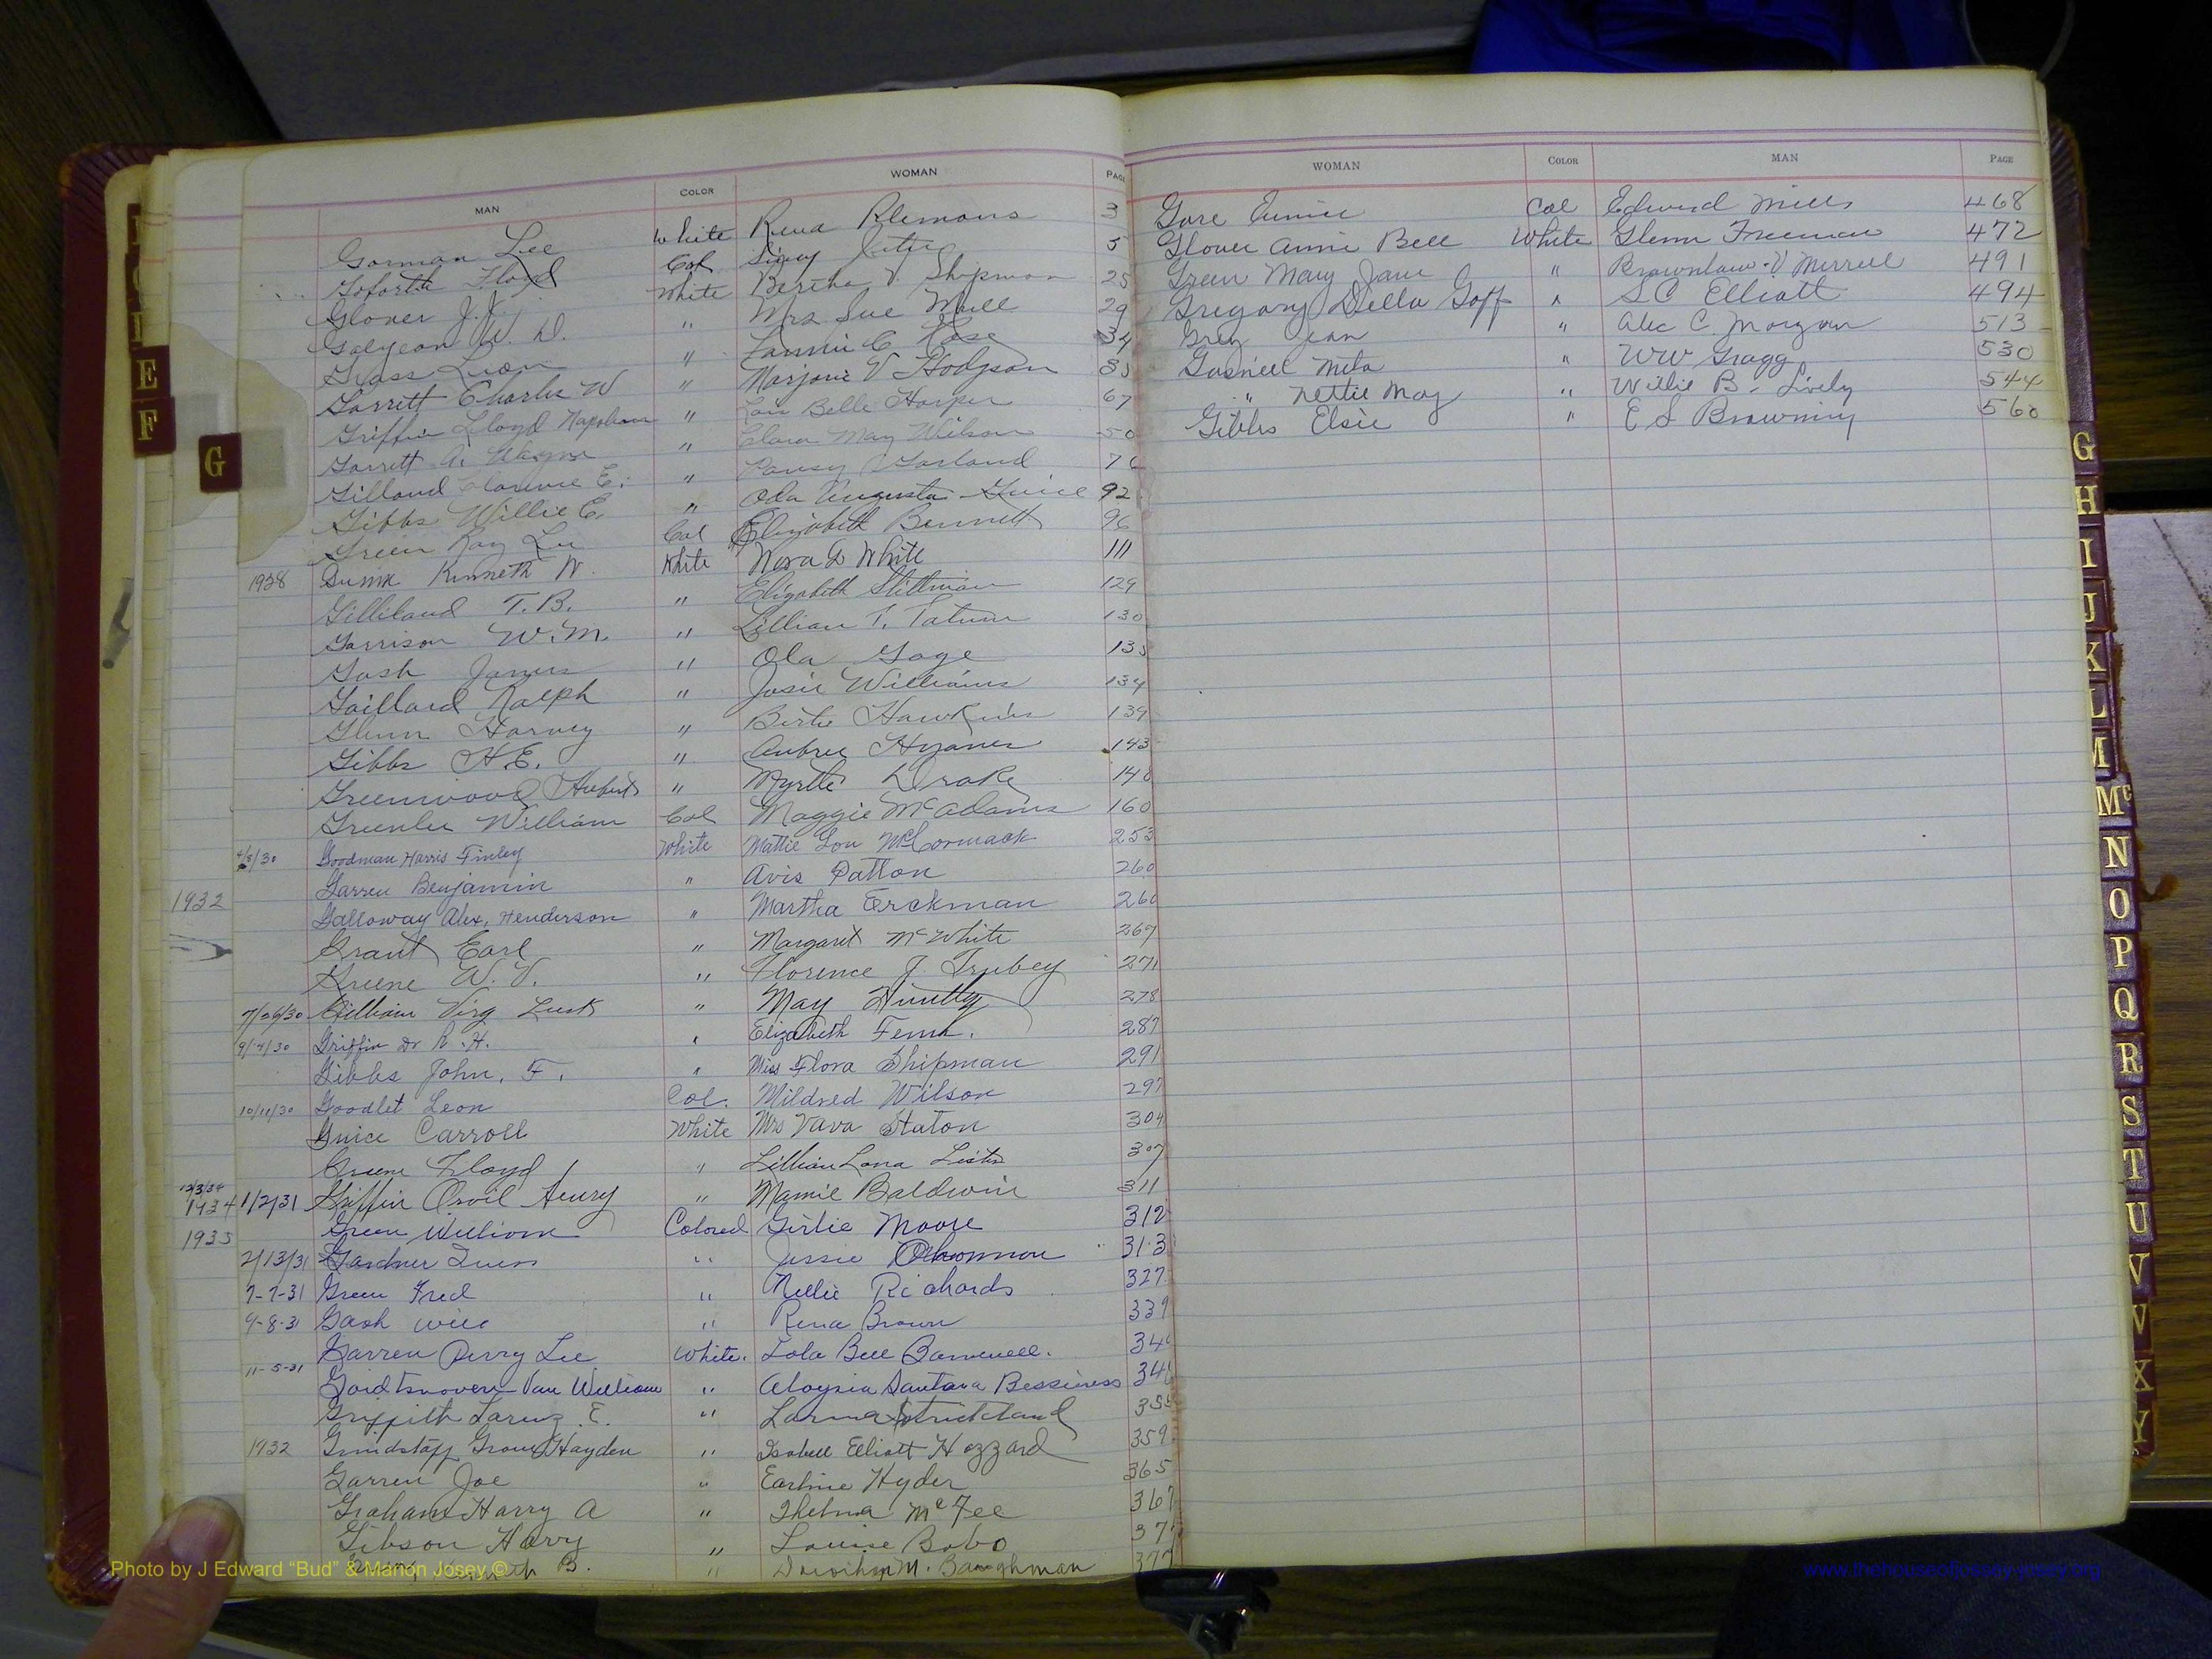 MAN COLOR WOMAN PAGE
Gorman Lee White Rena Klemons 3
Goforth Floyd Col 5
Glover J.J. White Bertha V. Shipman 25
Galyean W. D. " Mrs Sue Mull 29
Grass Leon " Fannie C. Case 34
Garrett Charlie W " Marjorie V Hodgson
Griffin Lloyd Napoleon " Lois Belle Harper 67
Garrett A. Wayne " Clara May Wilson 50
Gilland Clarence E. " Pansy Garland
Gibbs Willie E. " Oda Augusta Guice 92
Green Ray Lee Col Elizabeth Bennett 96
1928 Kenneth W. White Nora White 111
Gilliland T. B. " Elizabeth Stillman 129
Garrison W. M. " Lillian T. Tatum 130
Gash James " Ola Gage
Gaillard Ralph " Josie Williams 134
Glenn Harvey " Hawkins 139
Gibbs H. E. " Aubrey 143
Greenwood Hubert " Myrtle Drake
Greenlee William Col Maggie McAdams 160
4/5/30 Goodman Harris Finley White Mattie Lou McCormack 253
Garren Benjamin " Avis Patton 260
1932 Galloway Alex, Henderson " Martha Erckman 260
Grant Earl " Margaret McWhite 269
Greene W. V. " Florence J. Trubey 271
7/26/30 Gilliam Virg Lusk " May Huntley 278
9/14/30 Griffin Dr " Elizabeth 287
Gibbs John. F. " Miss Flora Shipman 291
10/11/30 Goodlet Leon Col. Mildred Wilson 297
Guice Carroll White Mrs Vava Staton 304
Greene Floyd " Lillian Lona 307
1934 1/2/31 Griffin Orvil Henry " Mamie Baldwin 311
1933 Green William Colored Girlie Moore 312
2/13/31 Gardner " Jessie 313
7-7-31 Green Fred " Nellie Richards 327
9-8-31 Gash Will " Rena Brown 339
Garren Perry Lee White. Lola Bell
11-5-31 Van William " Aloysia Santana Bessiness
Griffith E. " Strickland
1932 Grindstaff Hayden " Isabell Elliott Hazzard 359
Garren Joe " Earline Hyder 365
Graham Harry A " Thelma McFee 367
Gibson Harry " Louise Bobo
B. " Dorothy M. Baughman 377
WOMAN COLOR MAN PAGE
Gore Eunice Col Edward Mills 468
Glover Annie Bell White Glenn Freeman 472
Green Mary Jane " Brownlow V Merrell 491
Gregory Della Goff " S C Elliott 494
Grey Jean " Alec C. Morgan 513
Gosnell Meta " W W Gragg 530
" Nettie May " Willie B. Lively 544
Gibbs Elsie " E S Browning 560
E
F
G
G
H
I
J
K
L
M
Mc
N
O
P
Q
R
S
T
U
V
X
Y
Photo by J Edward “Bud” & Marion Josey ©